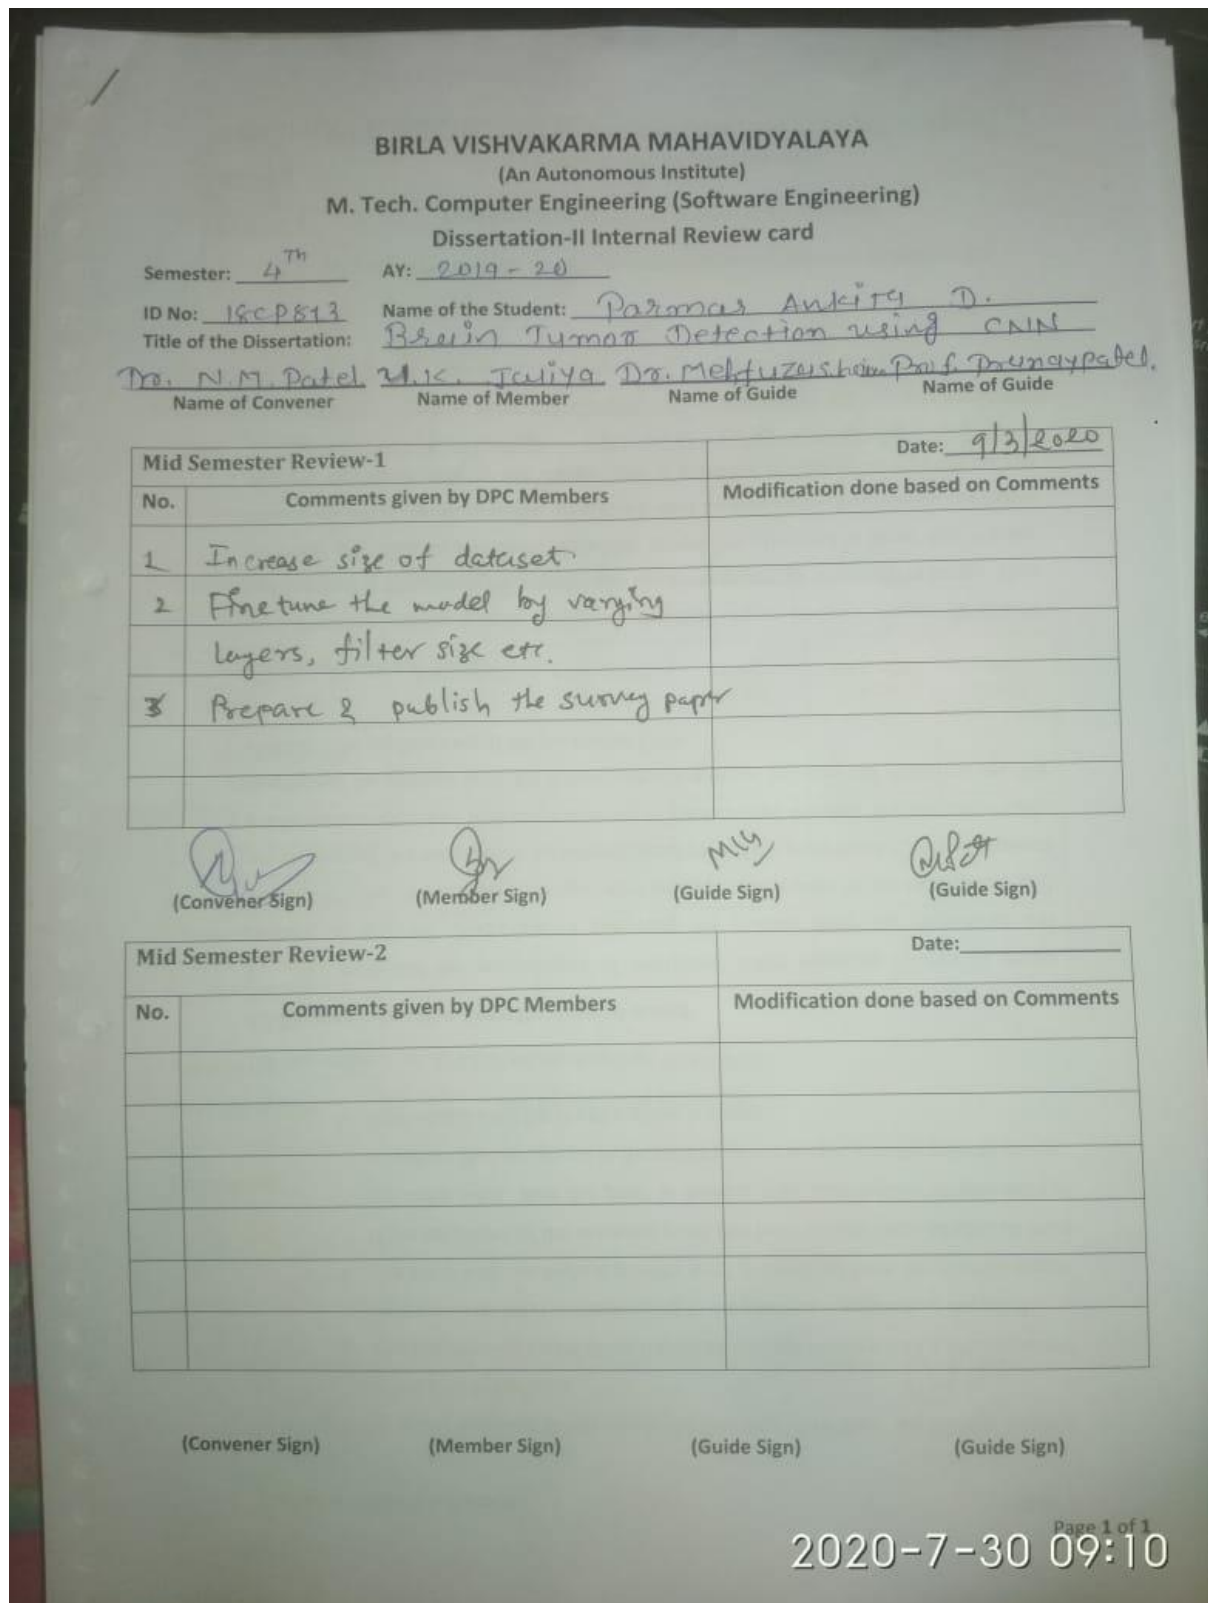 BIRLA VISHVAKARMA MAHAVIDYALAYA
(An Autonomous Institute)
M. Tech. Computer Engineering (Software Engineering)
Dissertation-II Internal Review card
Semester: 4Th AY: 2019-20
ID No: 18CP813 Name of the Student: Parmar Ankita D.
Title of the Dissertation: Brain Tumor Detection using CNN
Dr. N.M. Patel U.K. Jaliya Dr. Prof. Prunaypatel.
Name of Convener Name of Member Name of Guide Name of Guide
Mid Semester Review-1 Date: 9/3/2020
No. Comments given by DPC Members Modification done based on Comments
1 Increase size of dataset.
2 Finetune the model by varying
layers, filter size etc.
3 Prepare & publish the survey paper
(Convener Sign) (Member Sign) (Guide Sign) (Guide Sign)
Mid Semester Review-2 Date:
No. Comments given by DPC Members Modification done based on Comments
(Convener Sign) (Member Sign) (Guide Sign) (Guide Sign)
Page 1 of 1
2020-7-30 09:10